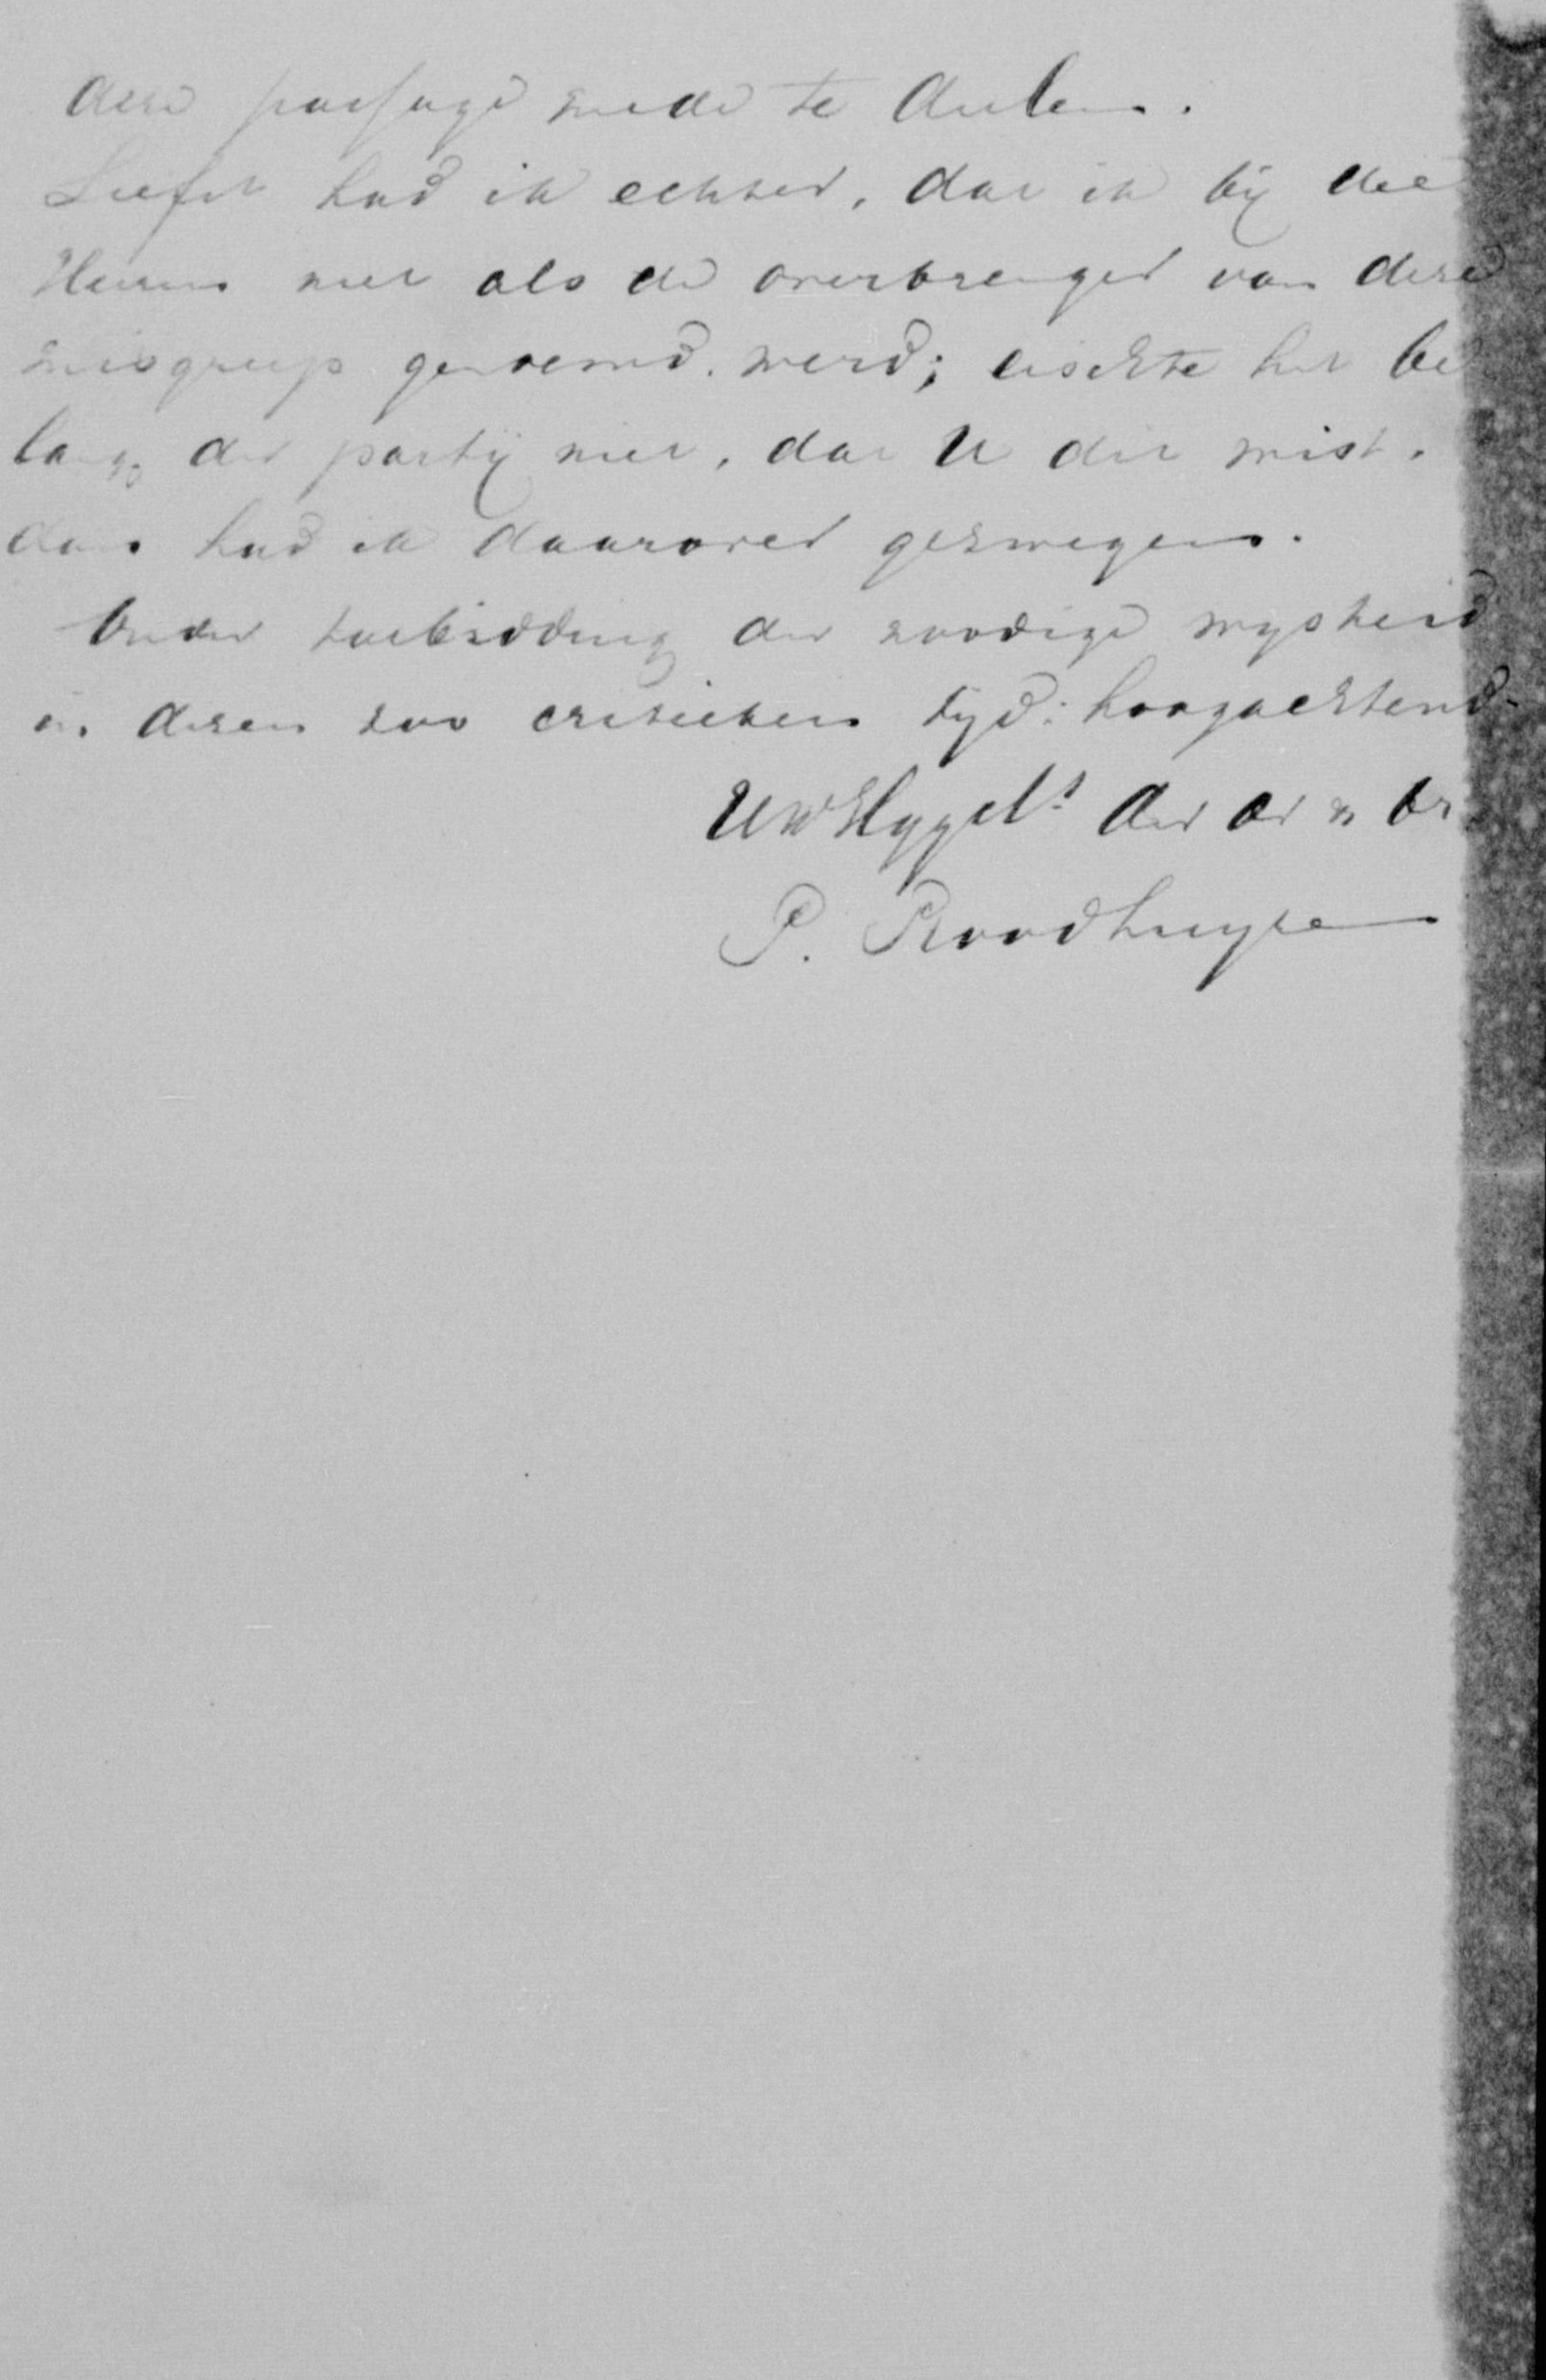 deze passage mede te deelen.
Liefst had ik echter, dat ik bij die
Heeren niet als de overbrenger van deze
misgreep genoemd werd; eischte het be
lang der partij niet, dat U dit wist,
dan had ik daarover gezwegen.
Onder toebidding der noodige wysheid
in dezen zoo critieken tyd: hoogachtend-
UWEHggelt der dr &
P. Roodhuyze